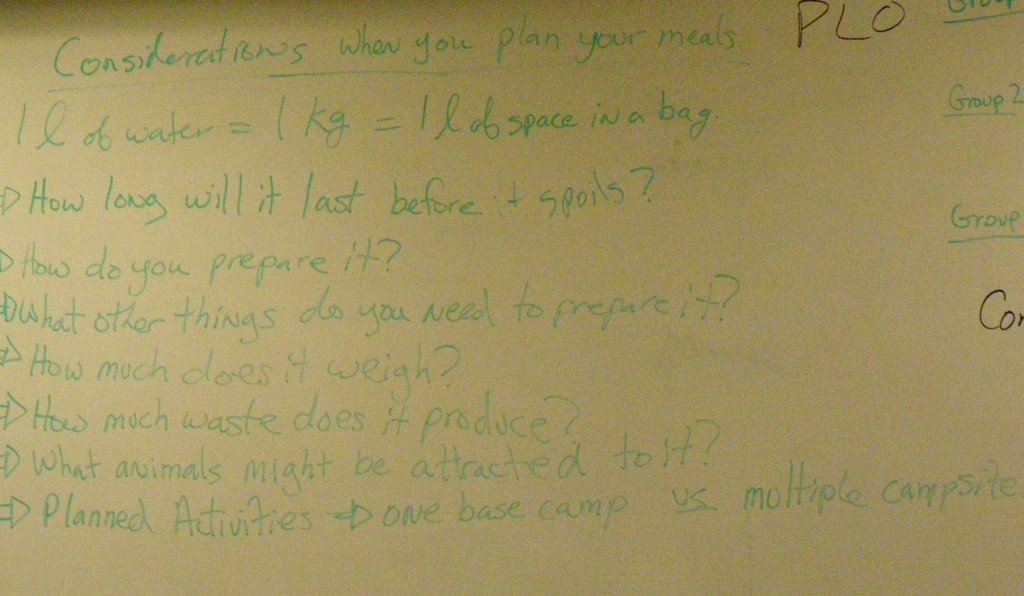 Considerations when you plan your meals
1 l of water = 1 kg = 1 l of space in a bag.
⇒ How long will it last before it spoils?
⇒ How do you prepare it?
⇒ What other things do you need to prepare it?
⇒ How much does it weigh?
⇒ How much waste does it produce?
⇒ What animals might be attracted to it?
⇒ Planned Activities ⇒ one base camp vs multiple campsite
PLO
Group 2
Group